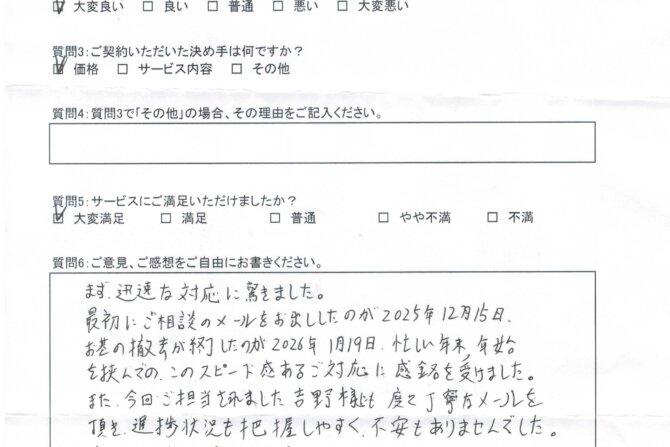 ☑ 大変良い ☐ 良い ☐ 普通 ☐ 悪い ☐ 大変悪い
質問3:ご契約いただいた決め手は何ですか?
☑ 価格 ☐ サービス内容 ☐ その他
質問4:質問3で「その他」の場合、その理由をご記入ください。
質問5:サービスにご満足いただけましたか?
☑ 大変満足 ☐ 満足 ☐ 普通 ☐ やや不満 ☐ 不満
質問6:ご意見、ご感想をご自由にお書きください。
まず、迅速な対応に驚きました。
最初にご相談のメールをお出ししたのが2025年12月15日、
お墓の撤去が終了したのが2026年1月19日、忙しい年末、年始
を挟んでの、このスピード感あるご対応に感銘を受けました。
また、今回ご担当されました吉野様にも度々丁寧なメールを
頂き、進捗状況も把握しやすく、不安もありませんでした。